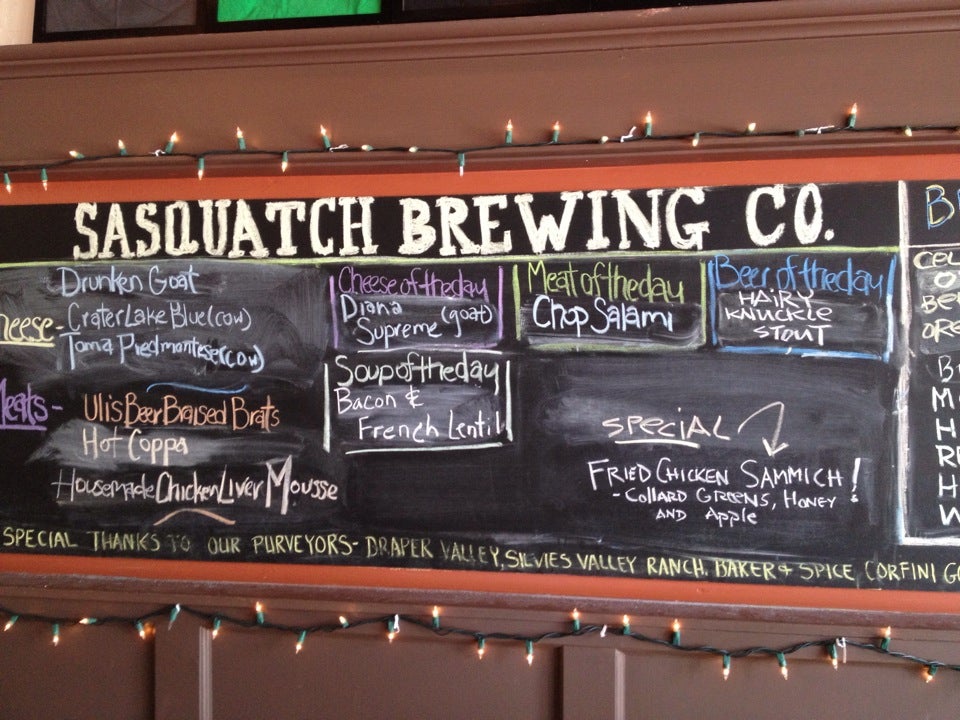 SASQUATCH BREWING CO.
Drunken Goat
heese - Crater Lake Blue (cow)
Toma Piedmontese (cow)
Meats - Ulis Beer Braised Brats
Hot Coppa
Housemade Chicken Liver Mousse
Cheese of the day
Diana
Supreme (goat)
Soup of the day
Bacon &
French Lentil
Meat of the day
Chop Salami
Beer of the day
HAIRY
KNUCKLE
STOUT
SPECIAL
FRIED CHICKEN SAMMICH!
- COLLARD GREENS, HONEY
AND Apple
SPECIAL THANKS TO OUR PURVEYORS- DRAPER VALLEY, SILVIES VALLEY RANCH. BAKER & SPICE, CORFINI GO